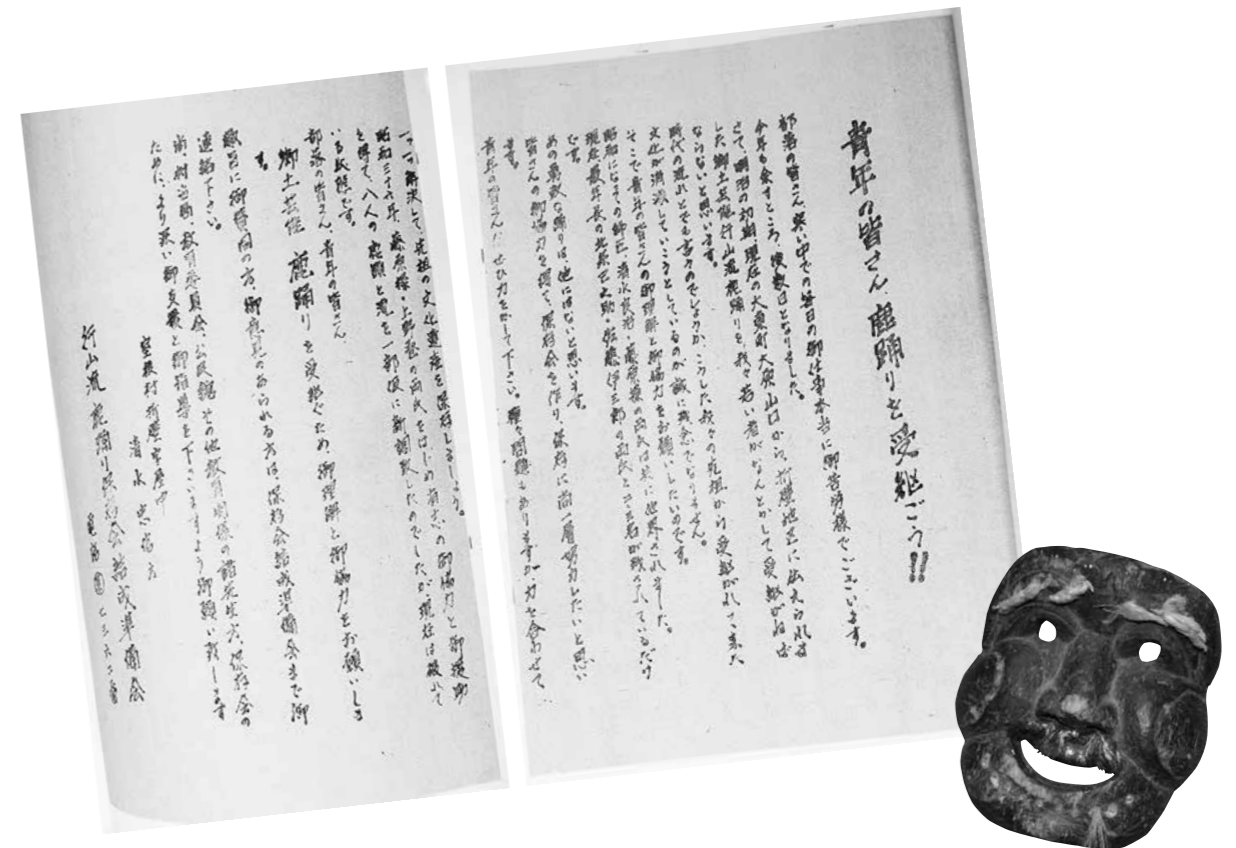 青年の皆さん、鹿踊りを受継ごう!!
部落の皆さん寒い中での毎日の御仕事本当に御苦労様でございます。
今年も余すところ、後数日となりました。
さて、明治の初期現在の大東町大原山口から、折壁地区に伝えられま
した郷土芸能行山流鹿踊りを、我々若い者がなんとかして受継がねば
ならないと思います。
時代の流れとでも言うのでしょうか、こうした我々の先祖から受継がれて来た
文化が消滅していこうとしているのが誠に残念でなりません。
そこで青年の皆さんの御理解と御協力をお願いしたいのです。
昭和になっての師匠、清水良治・藤原操の両氏は早に他界されました。
現在最年長の 佐藤伊三郎の両氏と三名が残されているだけ
です。
あの勇敢な踊りは他にはないと思います。
皆さんの御協力を得て、保存会を作り、保存に尚一層努力したいと思い
ます。
青年の皆さんだ、ぜひ力をかして下さい。種々問題もありますが、力を合わせて、
一つ一つ解決して先祖の文化遺産を保存しましょう。
昭和三十 年、藤原操・上野 の両氏をはじめ有志の御協力と御援助
を得て、八人の鹿踊と児を一部後に新調致したのでしたが、現在は破れて
いる状態です。
部落の皆さん、青年の皆さん、
郷土芸能 鹿踊りを受継ぐため、御理解と御協力をお願いしま
す。
趣旨に御賛同の方、御意見のあられる方は、保存会結成準備会まで御
連絡下さい。
尚、村当局、教育委員会、公民館その他教育関係の諸先生方、保存会の
ために、より深い御支援と御指導を下さいますよう御願い致します
室根村折壁字屋中
清水 方
行山流鹿踊り保存会結成準備会
電話